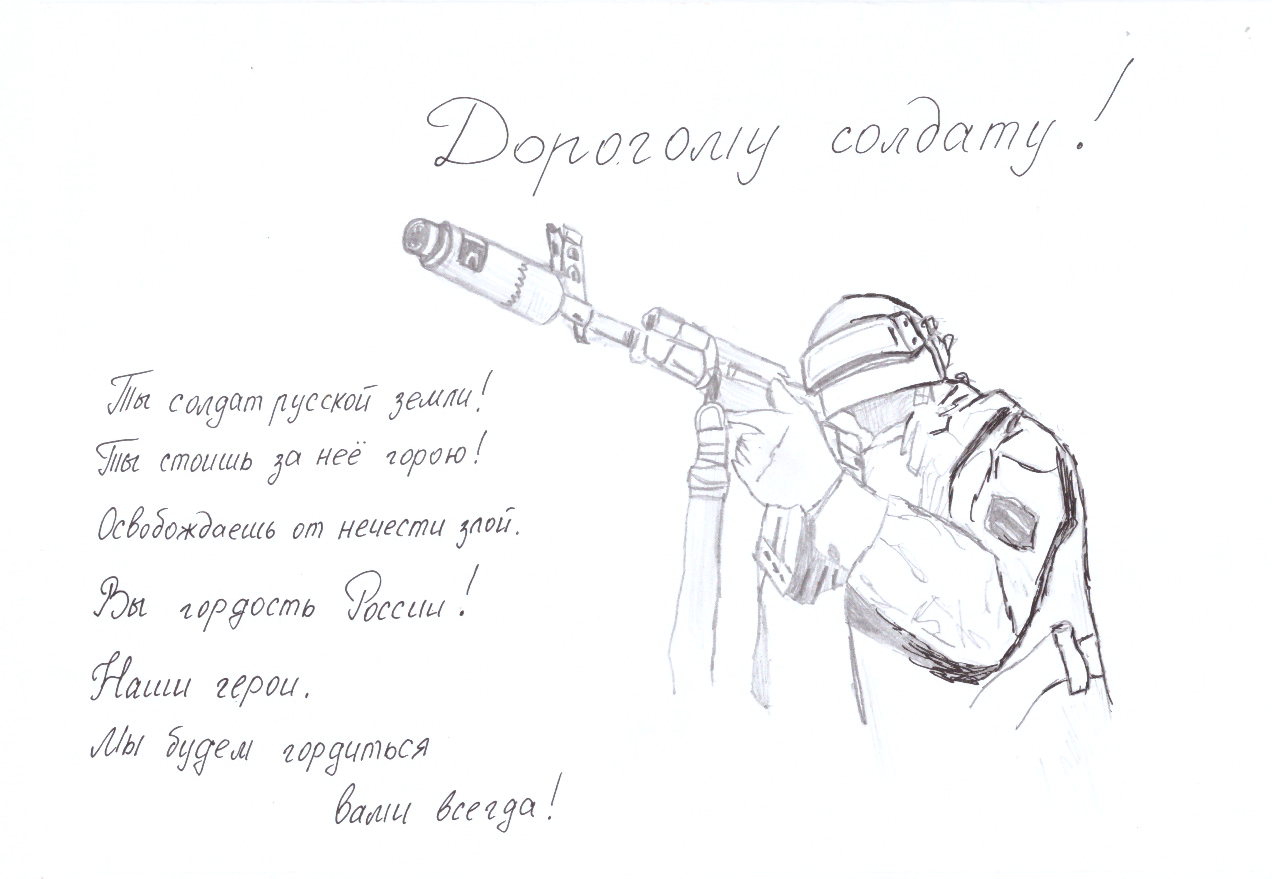 Дорогому солдату!
Ты солдат русской земли!
Ты стоишь за неё горою!
Освобождаешь от нечести злой.
Вы гордость России!
Наши герои.
Мы будем гордиться
вами всегда!